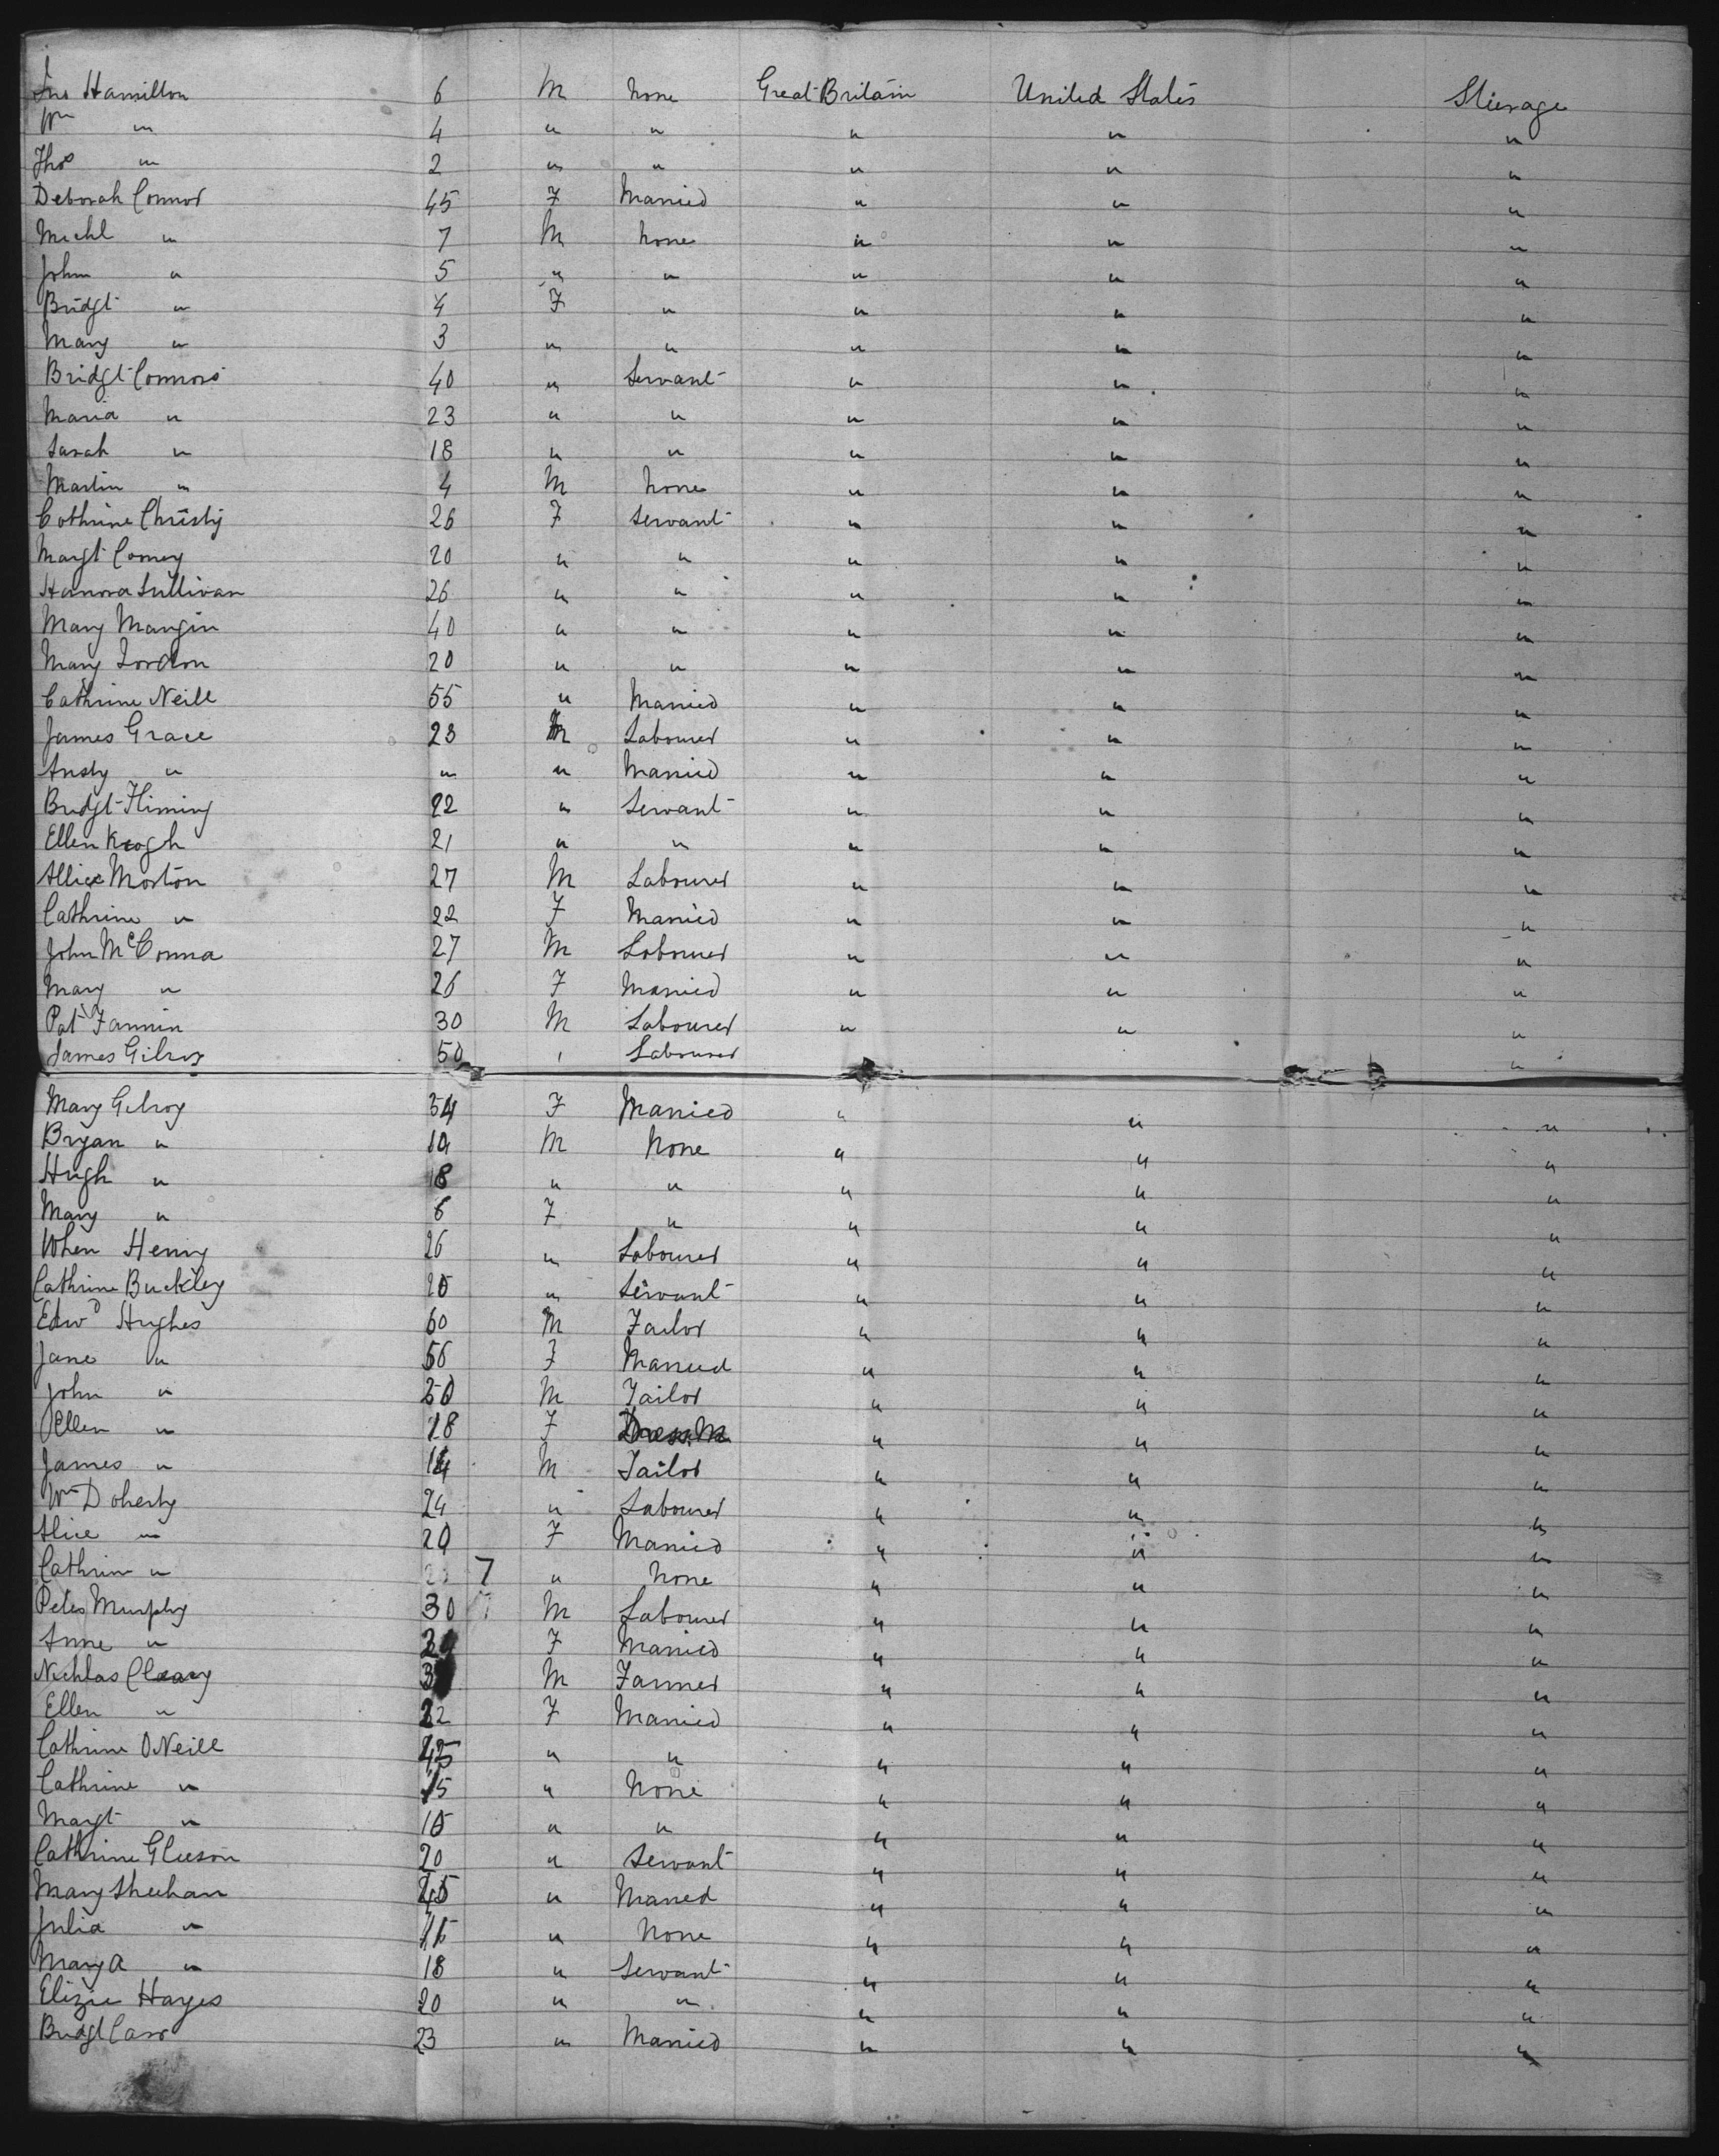 Jno Hamilton 6 M None Great Britain United States Steerage
Wm " 4 " " " " "
Thos " 2 " " " " "
Deborah Connor 45 F Married " " "
Michl " 7 M None " " "
John " 5 " " " " "
Bridgt " 4 F " " " "
Mary " 3 " " " " "
Bridgt Connors 40 " Servant " " "
Maria " 23 " " " " "
Sarah " 18 " " " " "
Martin " 4 M None " " "
Cathrine Christy 26 F Servant " " "
Margt Comey 20 " " " " "
Hanora Sullivan 26 " " " " "
Mary Mangin 40 " " " " "
Mary Jordon 20 " " " " "
Cathrine Neill 55 " Married " " "
James Grace 23 M Labourer " " "
Ansty " " " Married " " "
Bridgt Fliming 22 " Servant " " "
Ellen Keogh 21 " " " " "
Allice Morton 27 M Labourer " " "
Cathrine " 22 F Married " " "
John McConna 27 M Labourer " " "
Mary " 26 F Married " " "
Pat Fannin 30 M Labourer " " "
James Gilroy 50 " Labourer "
Mary Gilroy 34 F Married " " "
Bryan " 10 M None " " "
Hugh " 8 " " " " "
Mary " 6 F " " " "
Henry 26 " Labourer " " "
Cathrine Buckley 20 " Servant " " "
Edwd Hughes 60 M Tailor " " "
Jane " 56 F Married " " "
John " 20 M Tailor " " "
Ellen " 18 F Dress M " " "
James " 14 M Tailor " " "
Wm Doherty 24 " Labourer " " "
Alice " 20 F Married " " "
Cathrin " 7 " None " " "
Peter Murphy 30 M Labourer " " "
Anne " F Married " " "
Nichlas Cleary M Farmer " " "
Ellen " 22 F Married " " "
Cathrine O'Neill 45 " " " " "
Cathrine " 15 " None " " "
Margt " 10 " " " " "
Cathrine Gleeson 20 " Servant " " "
Mary Sheehan 45 " Maried " " "
Julia " " None " " "
Mary A " 18 " Servant " " "
Elizie Hayes 20 " " " " "
Bridgt Carr 23 " Married " " "